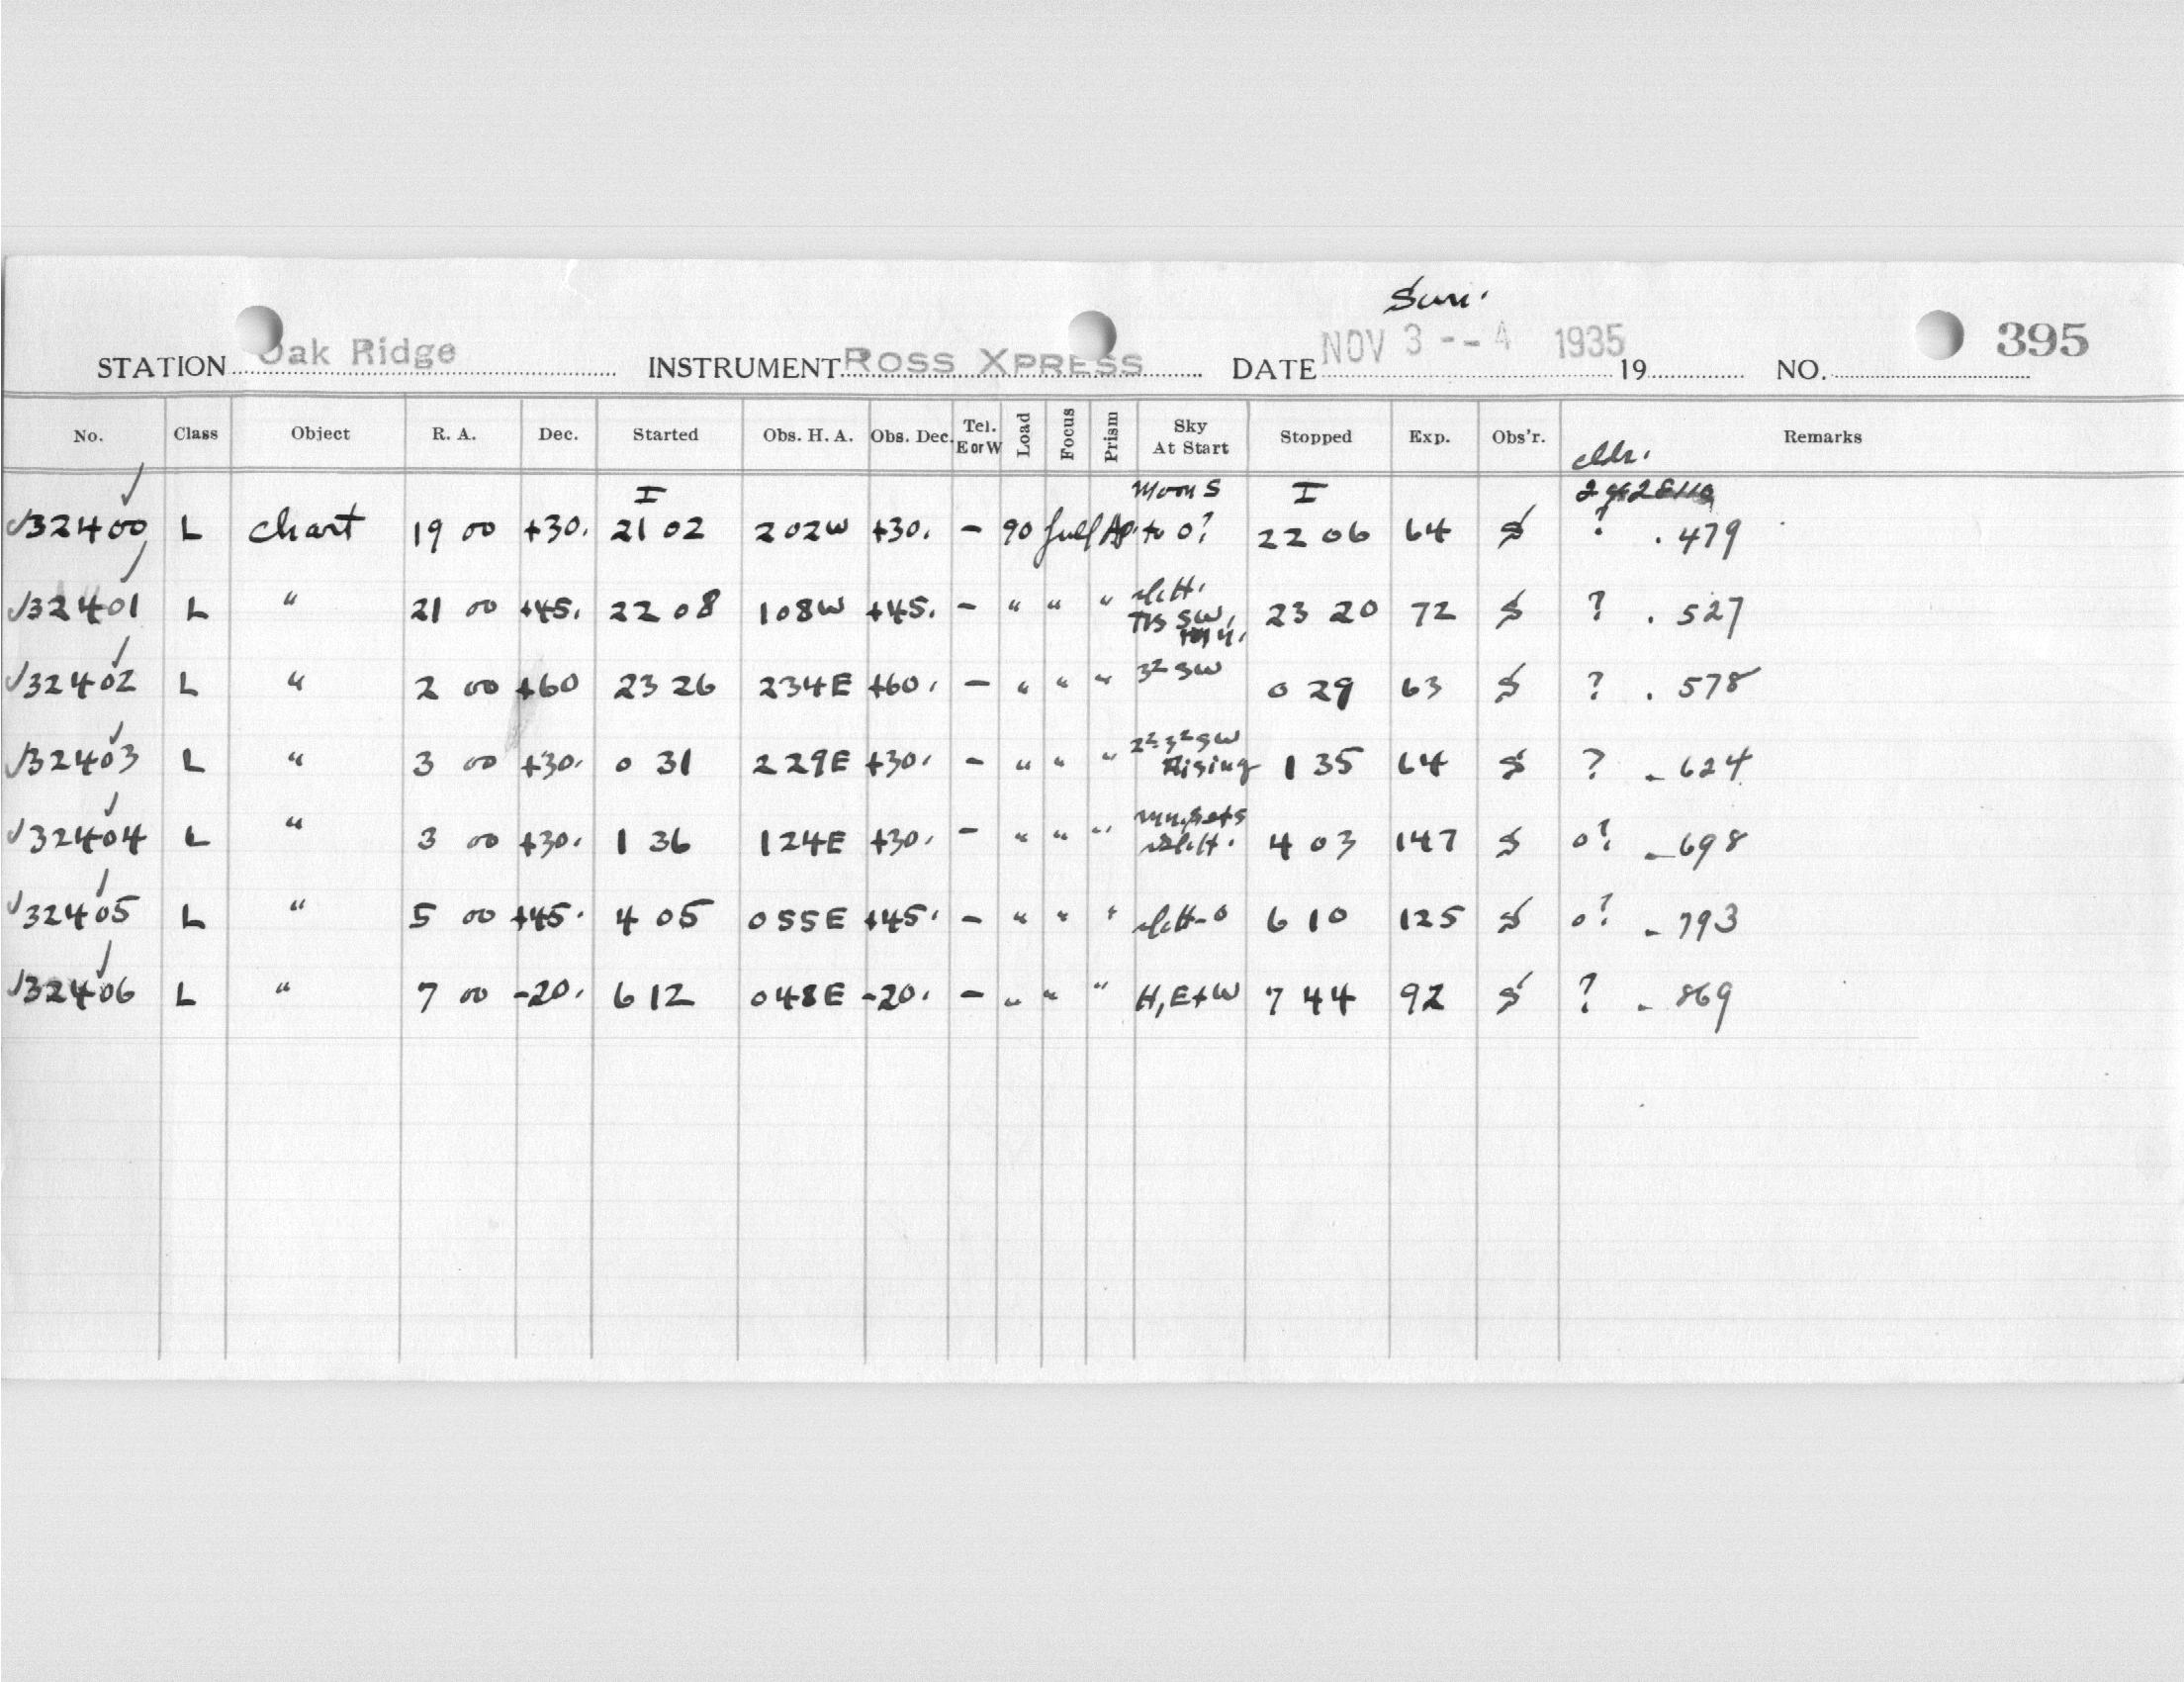 Sun.
STATION Oak Ridge INSTRUMENT ROSS XPRESS DATE NOV 3 -- 4 1935 19 NO. 395
No. Class Object R. A. Dec. Started Obs. H. A. Obs. Dec. Tel. E or W Load Focus Prism Sky At Start Stopped Exp. Obs'r. Remarks
I Moon S I
32400 L chart 19 00 +30. 21 02 202W +30. - 90 full Ap. to 0? 22 06 64 S ? . 479
32401 L " 21 00 +45. 22 08 108W +45. - " " " SW, 23 20 72 S ? . 527
32402 L " 2 00 +60 23 26 234E +60. - " " " 3² SW 0 29 63 S ? . 578
32403 L " 3 00 +30. 0 31 229E +30. - " " " 2² 3² SW Rising 1 35 64 S ? - 624
32404 L " 3 00 +30. 1 36 124E +30. - " " " sets 4 03 147 S 0? - 698
32405 L " 5 00 +45. 4 05 055E +45. - " " " 6 10 125 S 0? - 793
32406 L " 7 00 -20. 6 12 048E -20. - " " " H, E+W 7 44 92 S ? - 869